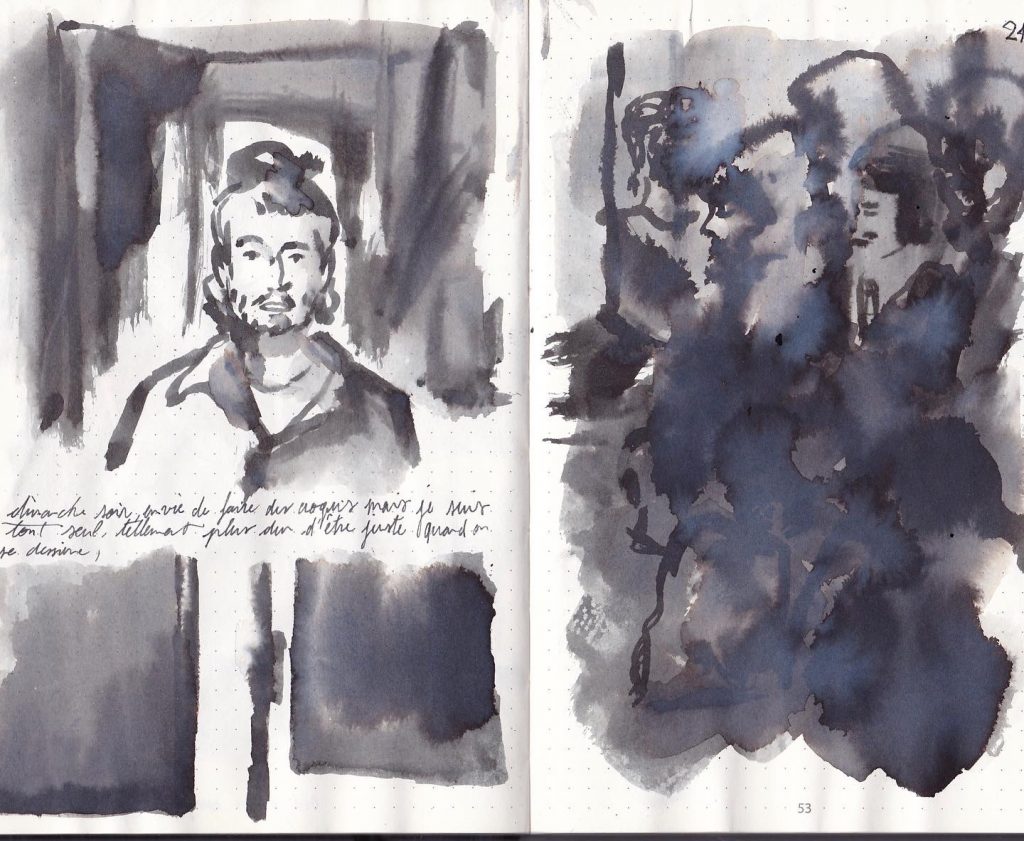 dimanche soir, envie de faire des croquis mais je suis
tout seul, tellement plus dur d'être juste quand on
se dessine,
24
53